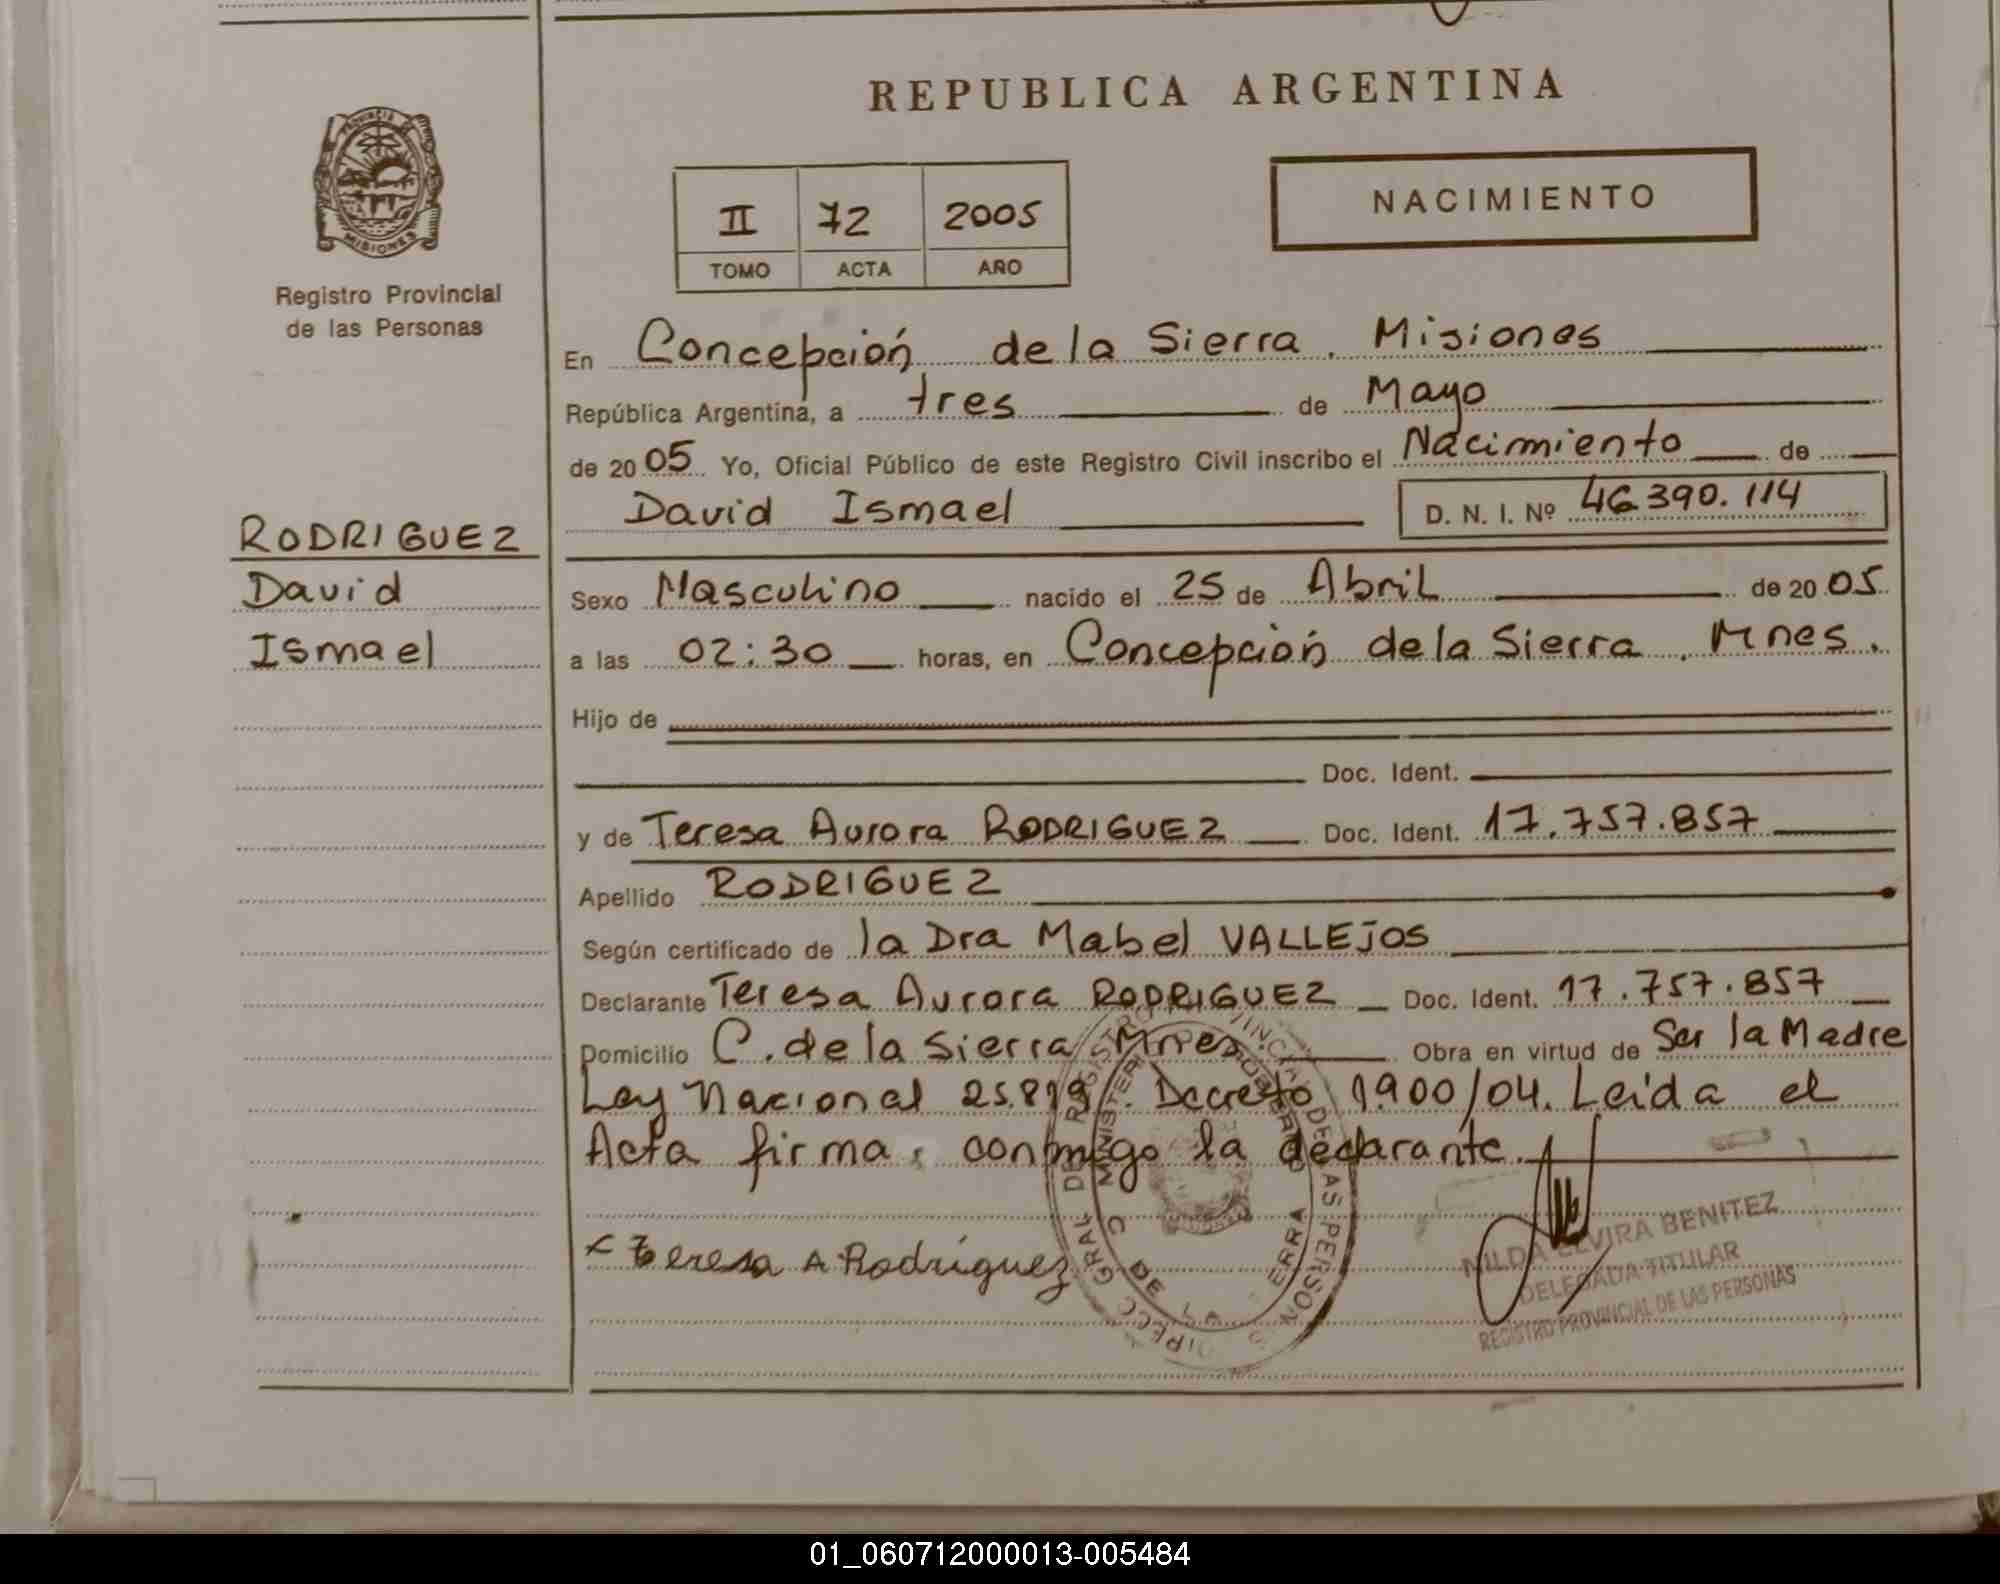 REPUBLICA ARGENTINA
PROVINCIA DE
MISIONES
Registro Provincial
de las Personas
II 72 2005
TOMO ACTA AÑO
NACIMIENTO
En Concepción de la Sierra. Misiones
República Argentina, a tres de Mayo
de 20 05 Yo, Oficial Público de este Registro Civil inscribo el Nacimiento de
David Ismael D. N. I. Nº 46.390.114
RODRIGUEZ
David
Ismael
Sexo Masculino nacido el 25 de Abril de 20 05
a las 02:30 horas, en Concepción de la Sierra. Mnes.
Hijo de
Doc. Ident.
y de Teresa Aurora RODRIGUEZ Doc. Ident. 17.757.857
Apellido RODRIGUEZ
Según certificado de la Dra Mabel VALLEJOS
Declarante Teresa Aurora RODRIGUEZ Doc. Ident. 17.757.857
Domicilio C. de la Sierra Mnes. Obra en virtud de Ser la Madre
Ley Nacional 25.819. Decreto 1900/04. Leida el
Acta firma, conmigo la declarante.
x Teresa A Rodríguez
NILDA ELVIRA BENITEZ
DELEGADA TITULAR
REGISTRO PROVINCIAL DE LAS PERSONAS
01_060712000013-005484